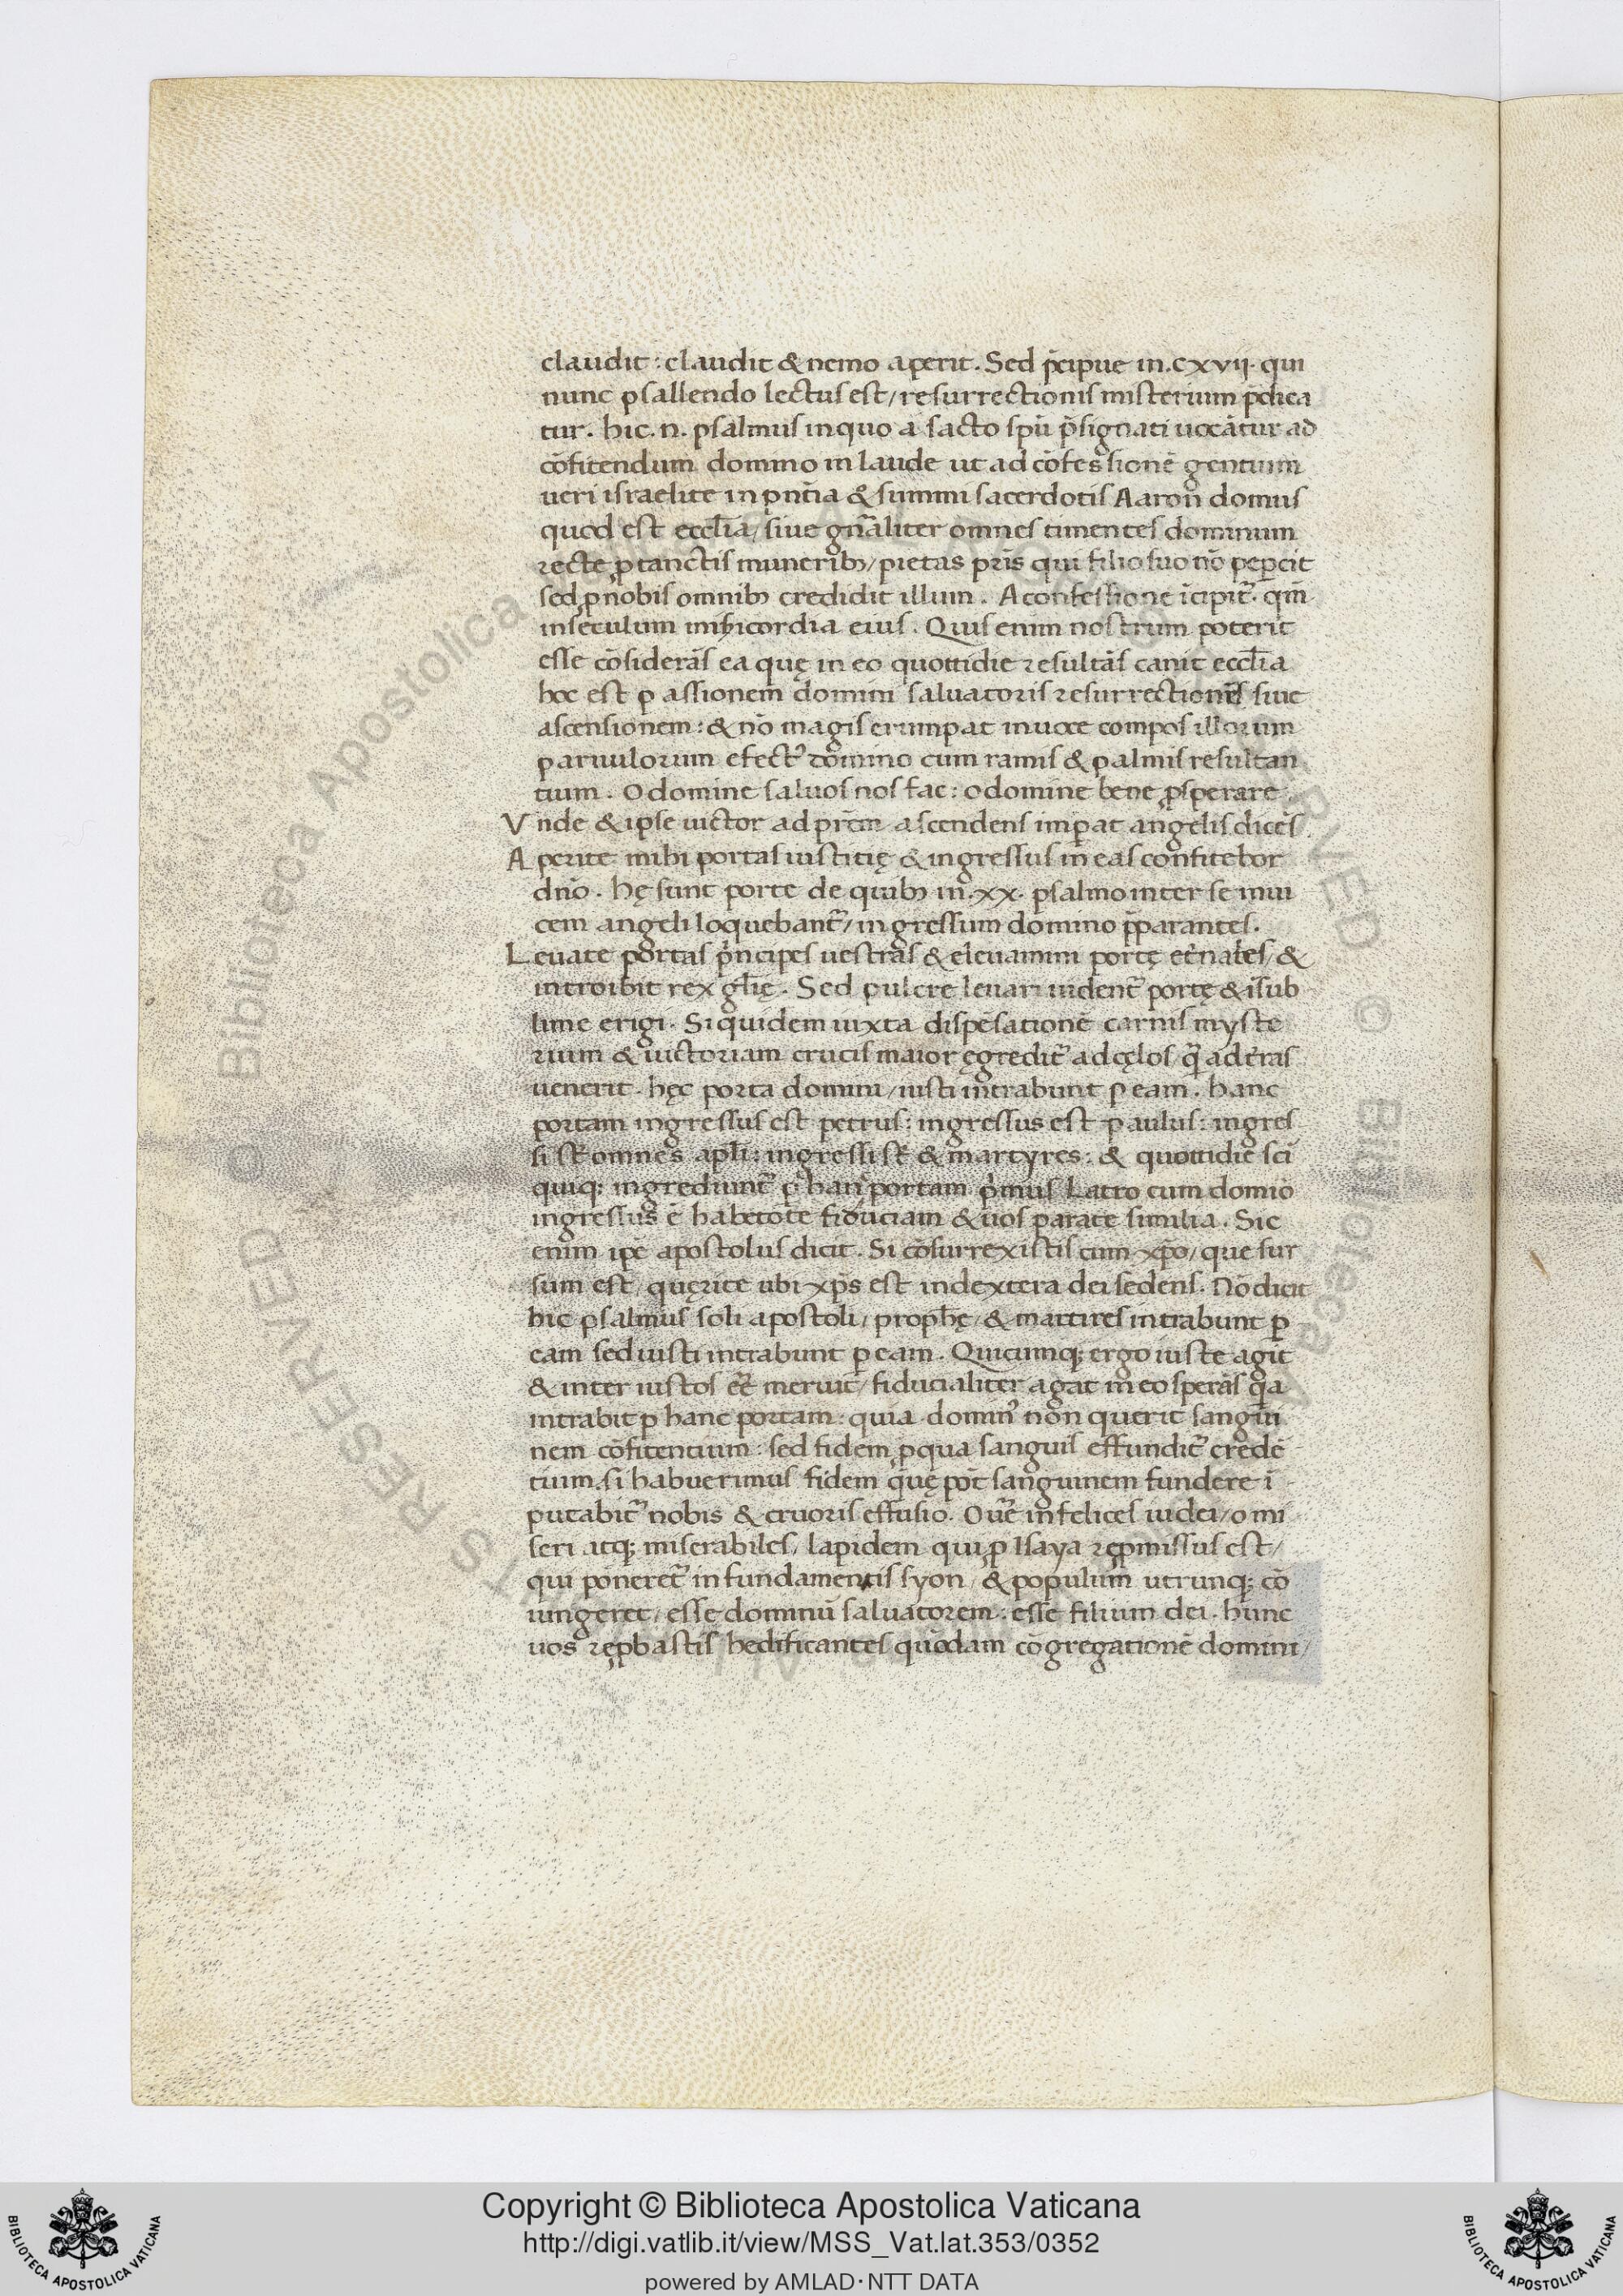 claudit: claudit & nemo aperit. Sed p̄cipue in. cxvii. qui
nunc psallendo lectus est/ resurrectionis misterium p̄dica
tur. hic .n. psalmus in quo a sācto spū p̄signati uocātur ad
cōfitendum domino in laude ut ad cōfessionē gentium
ueri israelite in pn̄tia & summi sacerdotis Aaron domus
quod est eccl̄ia/ siue gn̄aliter omnes timentes dominum
recte ꝓ tanctis munerib; / pietas pr̄is qui filio suo nō peꝑcit
sed ꝓ nobis omnib; credidit illum. A confessione īcipit̄. qm̄
in seculum mi̅sicordia eius. Quis enim nostrum poterit
esse cōsiderās ea quę in eo quottidie resultās canit eccl̄ia
hoc est passionem domini saluatoris resurrectionēs siue
ascensionem: & nō magis erumpat in uoce compos illorum
paruulorum efect᾿ domino cum ramis & palmis resultan
tium. O domine saluos nos fac: o domine bene ꝓsperare
Vnde & ipse uictor ad prēm ascendens imperat angelis dicēs
Aperite mihi portas iustitię & ingressus in eas confitebor
dn̄o. hę sunt porte de quib; in. xx. psalmo inter se inui
cem angeli loquebant̄/ ingressum domino p̄parantes.
Leuate portas p̄ncipes uestras & eleuamini portę et̄nales/ &
introibit rex gl̄ię. Sed pulcre leuari uident̄ portę & ī sub
lime erigi. Si quidem iuxta dispēsationē carnis myste
rium & uictoriam crucis maior ęgredit̄ ad cęlos/ q̄ ad t̄ras
uenerit. hęc porta domini/ iusti intrabunt ꝑ eam. hanc
portam ingressus est petrus: ingressus est paulus: ingres
si st̄ omnes apl̄i: ingressi st̄ & martyres: & quottidie sc̄i
quiq; ingrediunt̄ ꝑ hanc portam p̄mus Latro cum domīo
ingressus ē habetote fiduciam & uos parate similia. Sic
enim ip̄e apostolus dicit. Si cōsurrexistis cum xp̄o/ que sur
sum est/ quęrite ubi xp̄s est in dextera dei sedens. Nō dicit
hic psalmus soli apostoli/ prophę/ & martires intrabunt ꝑ
eam sed iusti intrabunt ꝑ eam. Quicumq; ergo iuste agit
& inter iustos eē meruit/ fiducialiter agat in eo sperās q̄a
intrabit ꝑ hanc portam: quia domin᾿ non querit sangui
nem cōfitentium: sed fidem ꝓ qua sanguis effundit̄ credē
tium. si habuerimus fidem q̄ue pōt sanguinem fundere ī
putabit̄ nobis & cruoris effusio. O ūe infelices iudei/ o mi
seri atq; miserabiles/ lapidem qui ꝑ Isaya reꝓmissus est/
qui poneret̄ in fundamentis syon/ & populum utrunq; cō
iungeret/ esse dominū saluatorem: esse filium dei. hunc
uos reꝓbastis hedificantes quodam cōgregationē domini/
Copyright © Biblioteca Apostolica Vaticana
http://digi.vatlib.it/view/MSS_Vat.lat.353/0352
powered by AMLAD·NTT DATA